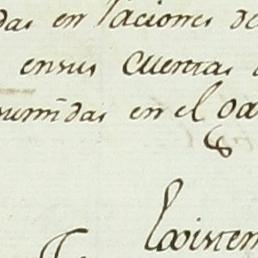 das en raciones de
ensus cuentas
sumidas en el ga
Existen